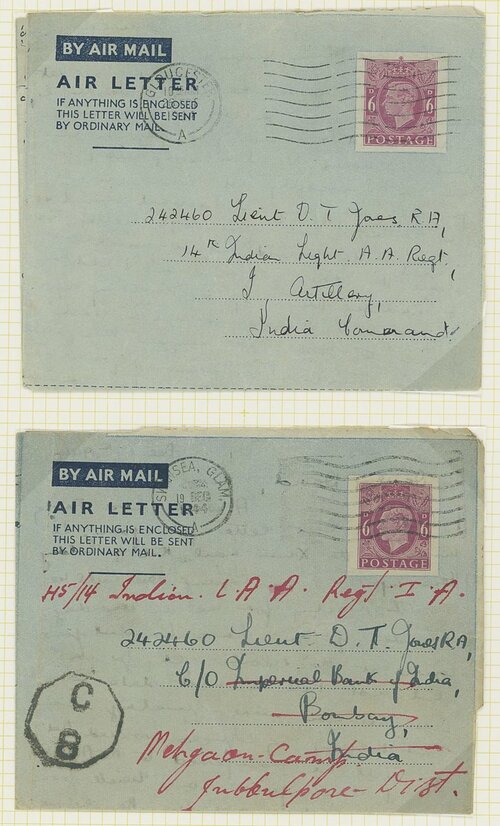 BY AIR MAIL
AIR LETTER
IF ANYTHING IS ENCLOSED
THIS LETTER WILL BE SENT
BY ORDINARY MAIL.
A
6D 6D
POSTAGE
242460 Lieut D. T Jones R.A,
14th Indian Light A.A. Regt,
I. Artillery,
India Command.
BY AIR MAIL
AIR LETTER
IF ANYTHING IS ENCLOSED
THIS LETTER WILL BE SENT
BY ORDINARY MAIL.
SWANSEA, GLAM
19 DEC
A
6D 6D
POSTAGE
H5/14 Indian. L.A.A. Regt I.A.
242460 Lieut D. T. Jones RA,
C/O Imperial Bank of India,
Bombay,
India
Mehgaon-Camp
Jubbulpore-Dist.
C
8